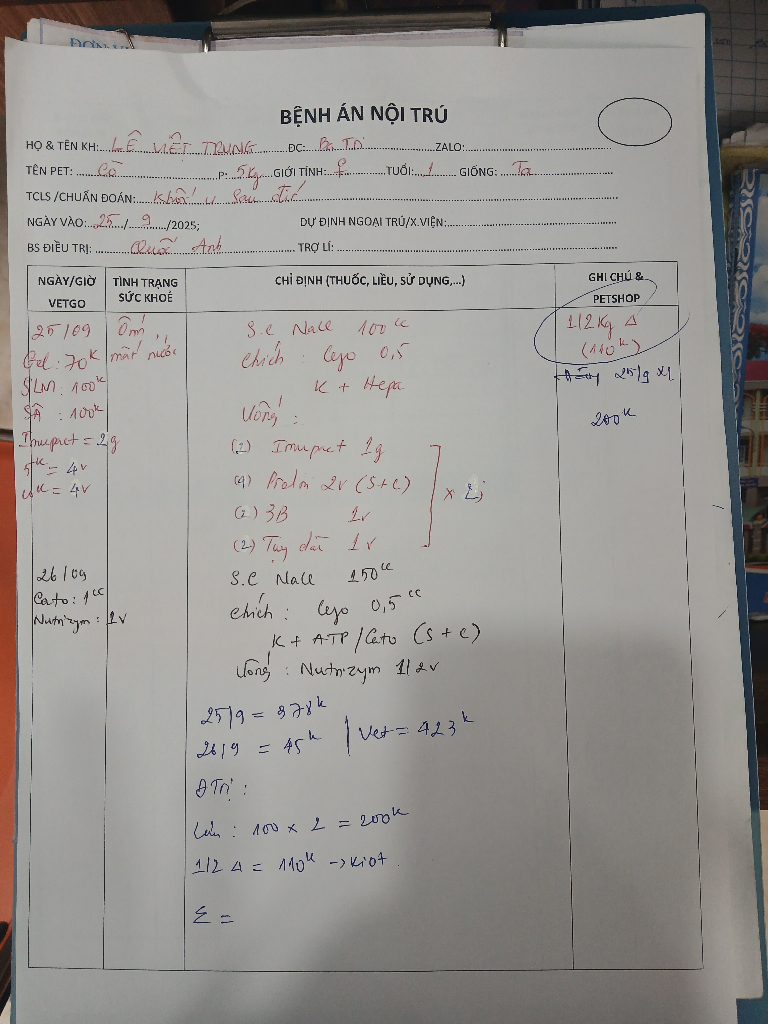 BỆNH ÁN NỘI TRÚ
HỌ & TÊN KH: LÊ VIẾT TRUNG ĐC: ZALO:
TÊN PET: Cò P: 5kg GIỚI TÍNH: ♀ TUỔI: 1 GIỐNG: Ta
TCLS /CHUẨN ĐOÁN: Khối u sau
NGÀY VÀO: 25 / 9 /2025; DỰ ĐỊNH NGOẠI TRÚ/X.VIỆN:
BS ĐIỀU TRỊ: Quốc Anh TRỢ LÍ:
NGÀY/GIỜ VETGO
TÌNH TRẠNG SỨC KHOẺ
CHỈ ĐỊNH (THUỐC, LIỀU, SỬ DỤNG,...)
GHI CHÚ & PETSHOP
25/09
Gel: 70k
SLM: 100k
SÂ: 100k
Imupret = 2g
5k = 4v
= 4v
Ốm,
mất nước
S.C Nacl 100cc
Chích: 0,5
K + Hepa
Uống:
(2) Imupret 1g
2v (S+C)
(2) 3B 1v
(2) 1v
1/2 kg Δ
(110k)
25/9 x1
200k
26/09
Cato: 1cc
Nutrizym: 1v
S.C Nacl 150cc
Chích: 0,5cc
K + ATP/Cato (S+C)
Uống: Nutrizym 1/2v
25/9 = 378k
26/9 = 45k
Vet = 423k
ĐTrị:
100 x 2 = 200k
1/2 Δ = 110k -> Kiot
Σ =